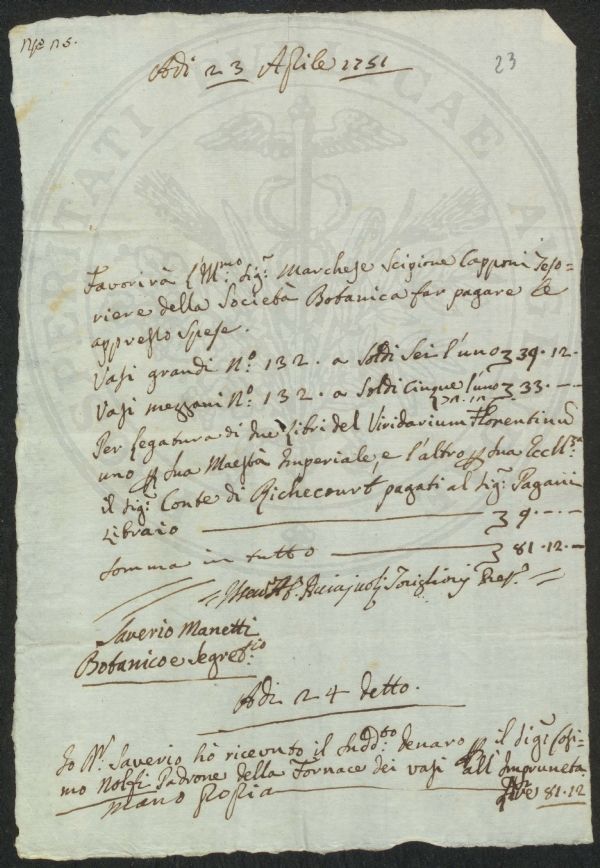 Adì 23 Aprile 1751
23
Favorirà l'Ill.mo Sig.r Marchese Scipione Capponi Teso=
riere della Società Botanica far pagare le
appresso spese.
Vasi grandi N.o 132. a Soldi Sei l'uno 39.12.
Vasi mezzani N.o 132. a Soldi Cinque l'uno 33.--
Per legatura di due Libri del Viridarium Florentinū
uno p Sua Maestà Imperiale, e l'altro p Sua Eccll.za
il Sig.r Conte di Richecourt pagati al Sig.r Pagani
Libraio 9.--
Somma in tutto 81.12.-
Saverio Manetti
Botanico e Segret.rio
Adì 24 detto.
Io Saverio hò ricevuto il Sudd.to denaro p il Sig.r Cosi=
mo Nolfi Padrone della Fornace dei vasi all'Impruneta
mano propria 81.12
SPERITATI PUBLICAE